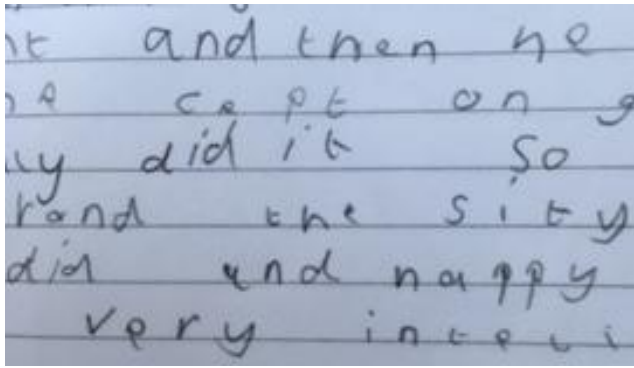 and then he
he cept on g
did it so
rand the sity
did and happy
very inteli